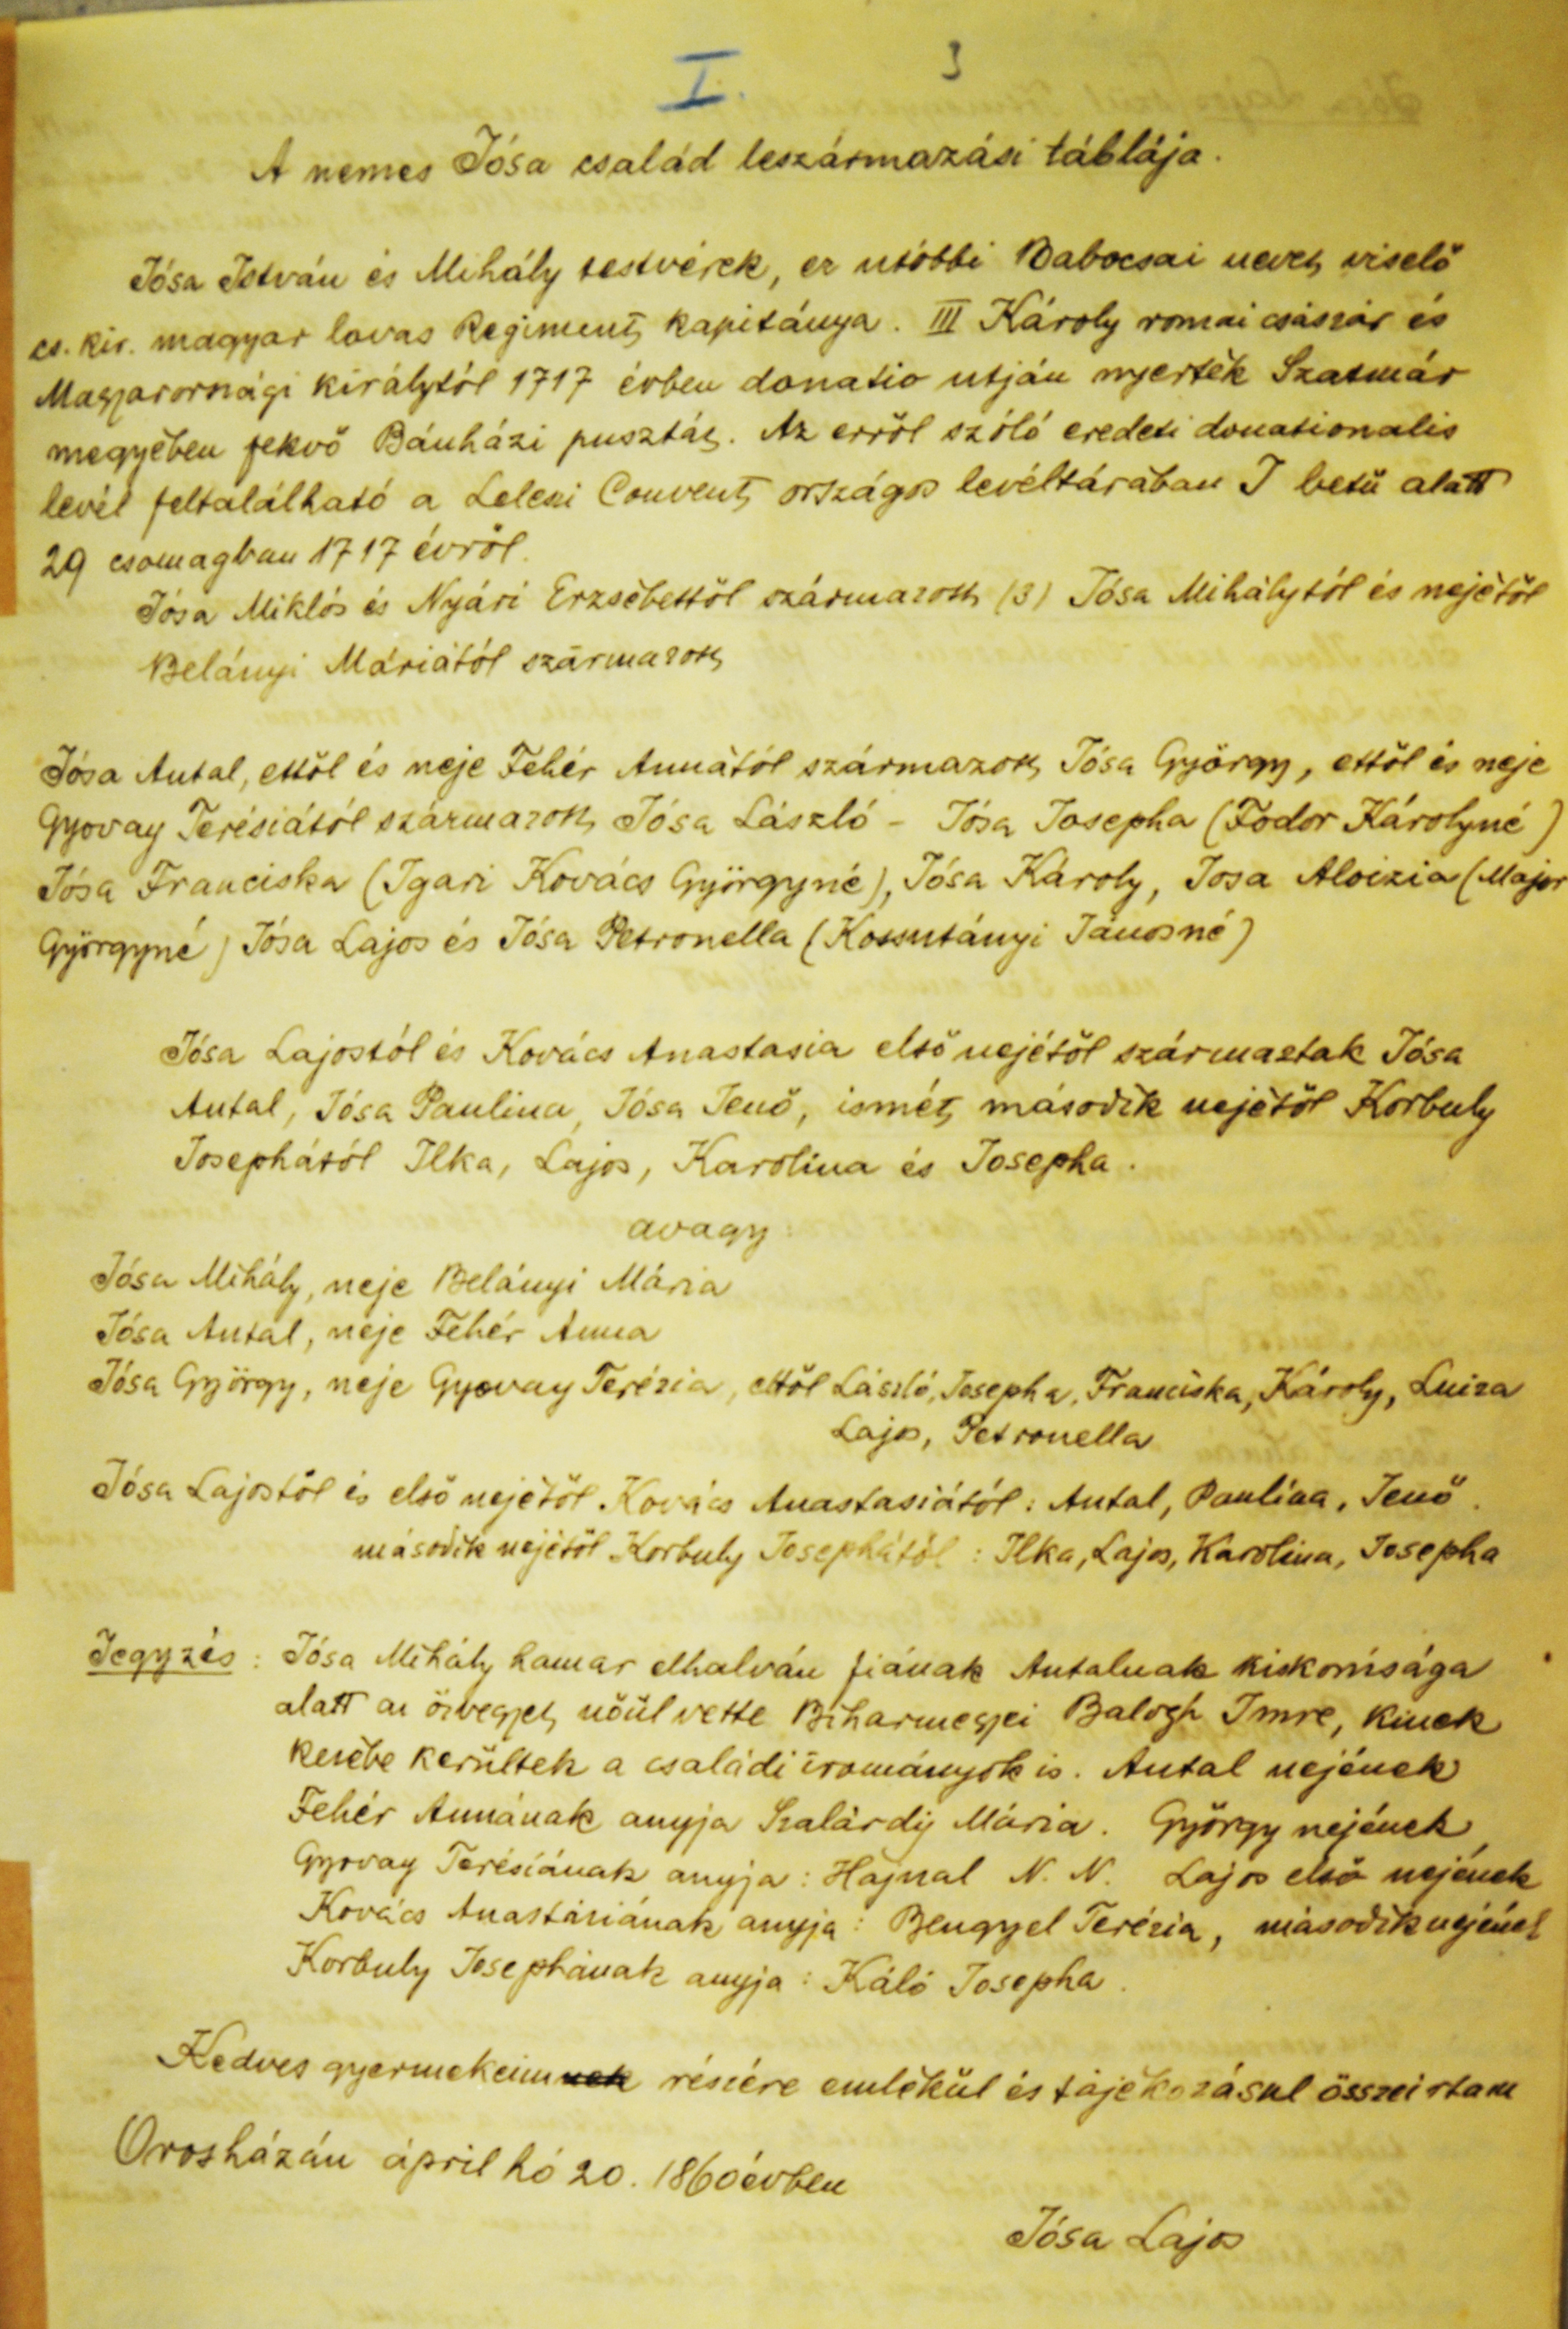 I. 3
A nemes Jósa család leszármazási táblája.
Jósa István és Mihály testvérek, ez utóbbi Babocsai nevet viselő
cs. kir. magyar lovas Regiment kapitánya. III Károly romai császár és
Magyarországi királytól 1717 évben donatio utján nyerték Szatmár
megyében fekvő Bánházi pusztát. Az erről szóló eredeti donationalis
levél feltalálható a Leleszi Convent országos levéltárában J betü alatt
29 csomagban 1717 évről.
Jósa Miklós és Nyári Erzsébettől származott (3) Jósa Mihálytól és nejétől
Belányi Máriától származott
Jósa Antal, ettől és neje Fehér Annától származott Jósa György, ettől és neje
Gyovay Terésiától származott Jósa László - Jósa Josepha (Fodor Károlyné)
Jósa Franciska (Igari Kovács Györgyné), Jósa Károly, Josa Aloizia (Major
Györgyné) Jósa Lajos és Jósa Petronella (Kossutányi Jánosné)
Jósa Lajostól és Kovács Anastasia első nejétől származtak Jósa
Antal, Jósa Paulina, Jósa Jenő, ismét második nejétől Korbuly
Josephától Ilka, Lajos, Karolina és Josepha.
avagy:
Jósa Mihály, neje Belányi Mária
Jósa Antal, neje Fehér Anna
Jósa György, neje Gyovay Terézia, ettől László, Josepha, Franciska, Károly, Luiza
Lajos, Petronella
Jósa Lajostól és első nejétől Kovács Anastasiától: Antal, Paulina, Jenő.
második nejétől Korbuly Josephától: Ilka, Lajos, Karolina, Josepha
Jegyzés: Jósa Mihály hamar elhalván fiának Antalnak kiskorusága
alatt az özvegyet nőül vette Biharmegyei Balogh Imre, kinek
kezébe kerültek a családi irományok is. Antal nejének
Fehér Annának anyja Szalárdy Mária. György nejének
Gyovay Terésiának anyja: Hajnal N. N. Lajos első nejének
Kovács Anastáziának anyja: Bengyel Terézia, második nejének
Korbuly Josephának anyja: Káló Josepha.
Kedves gyermekeimnek részére emlékül és tájékozásul összeirtam
Orosházán ápril hó 20. 1860 évben
Jósa Lajos